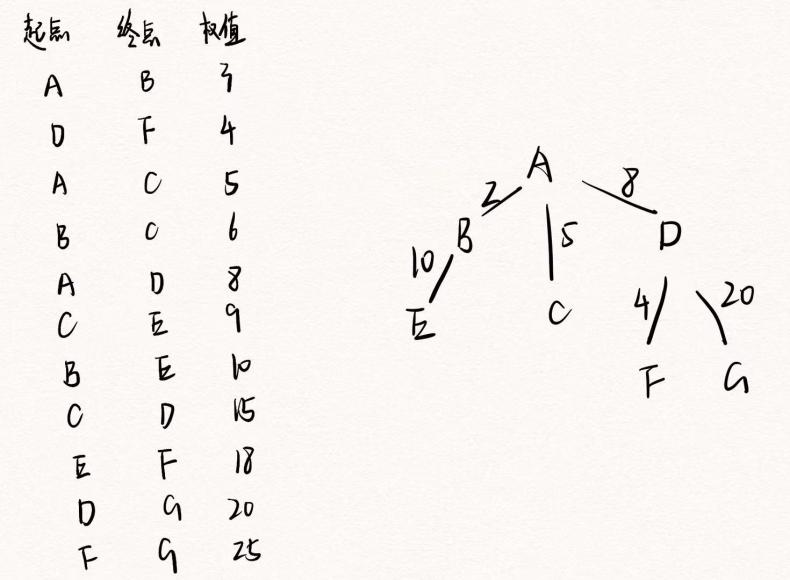 起点 终点 权值
A B 3
D F 4
A C 5
B C 6
A D 8
C E 9
B E 10
C D 15
E F 18
D G 20
F G 25
A
2 8
B 5 D
10 4 20
E C
F G